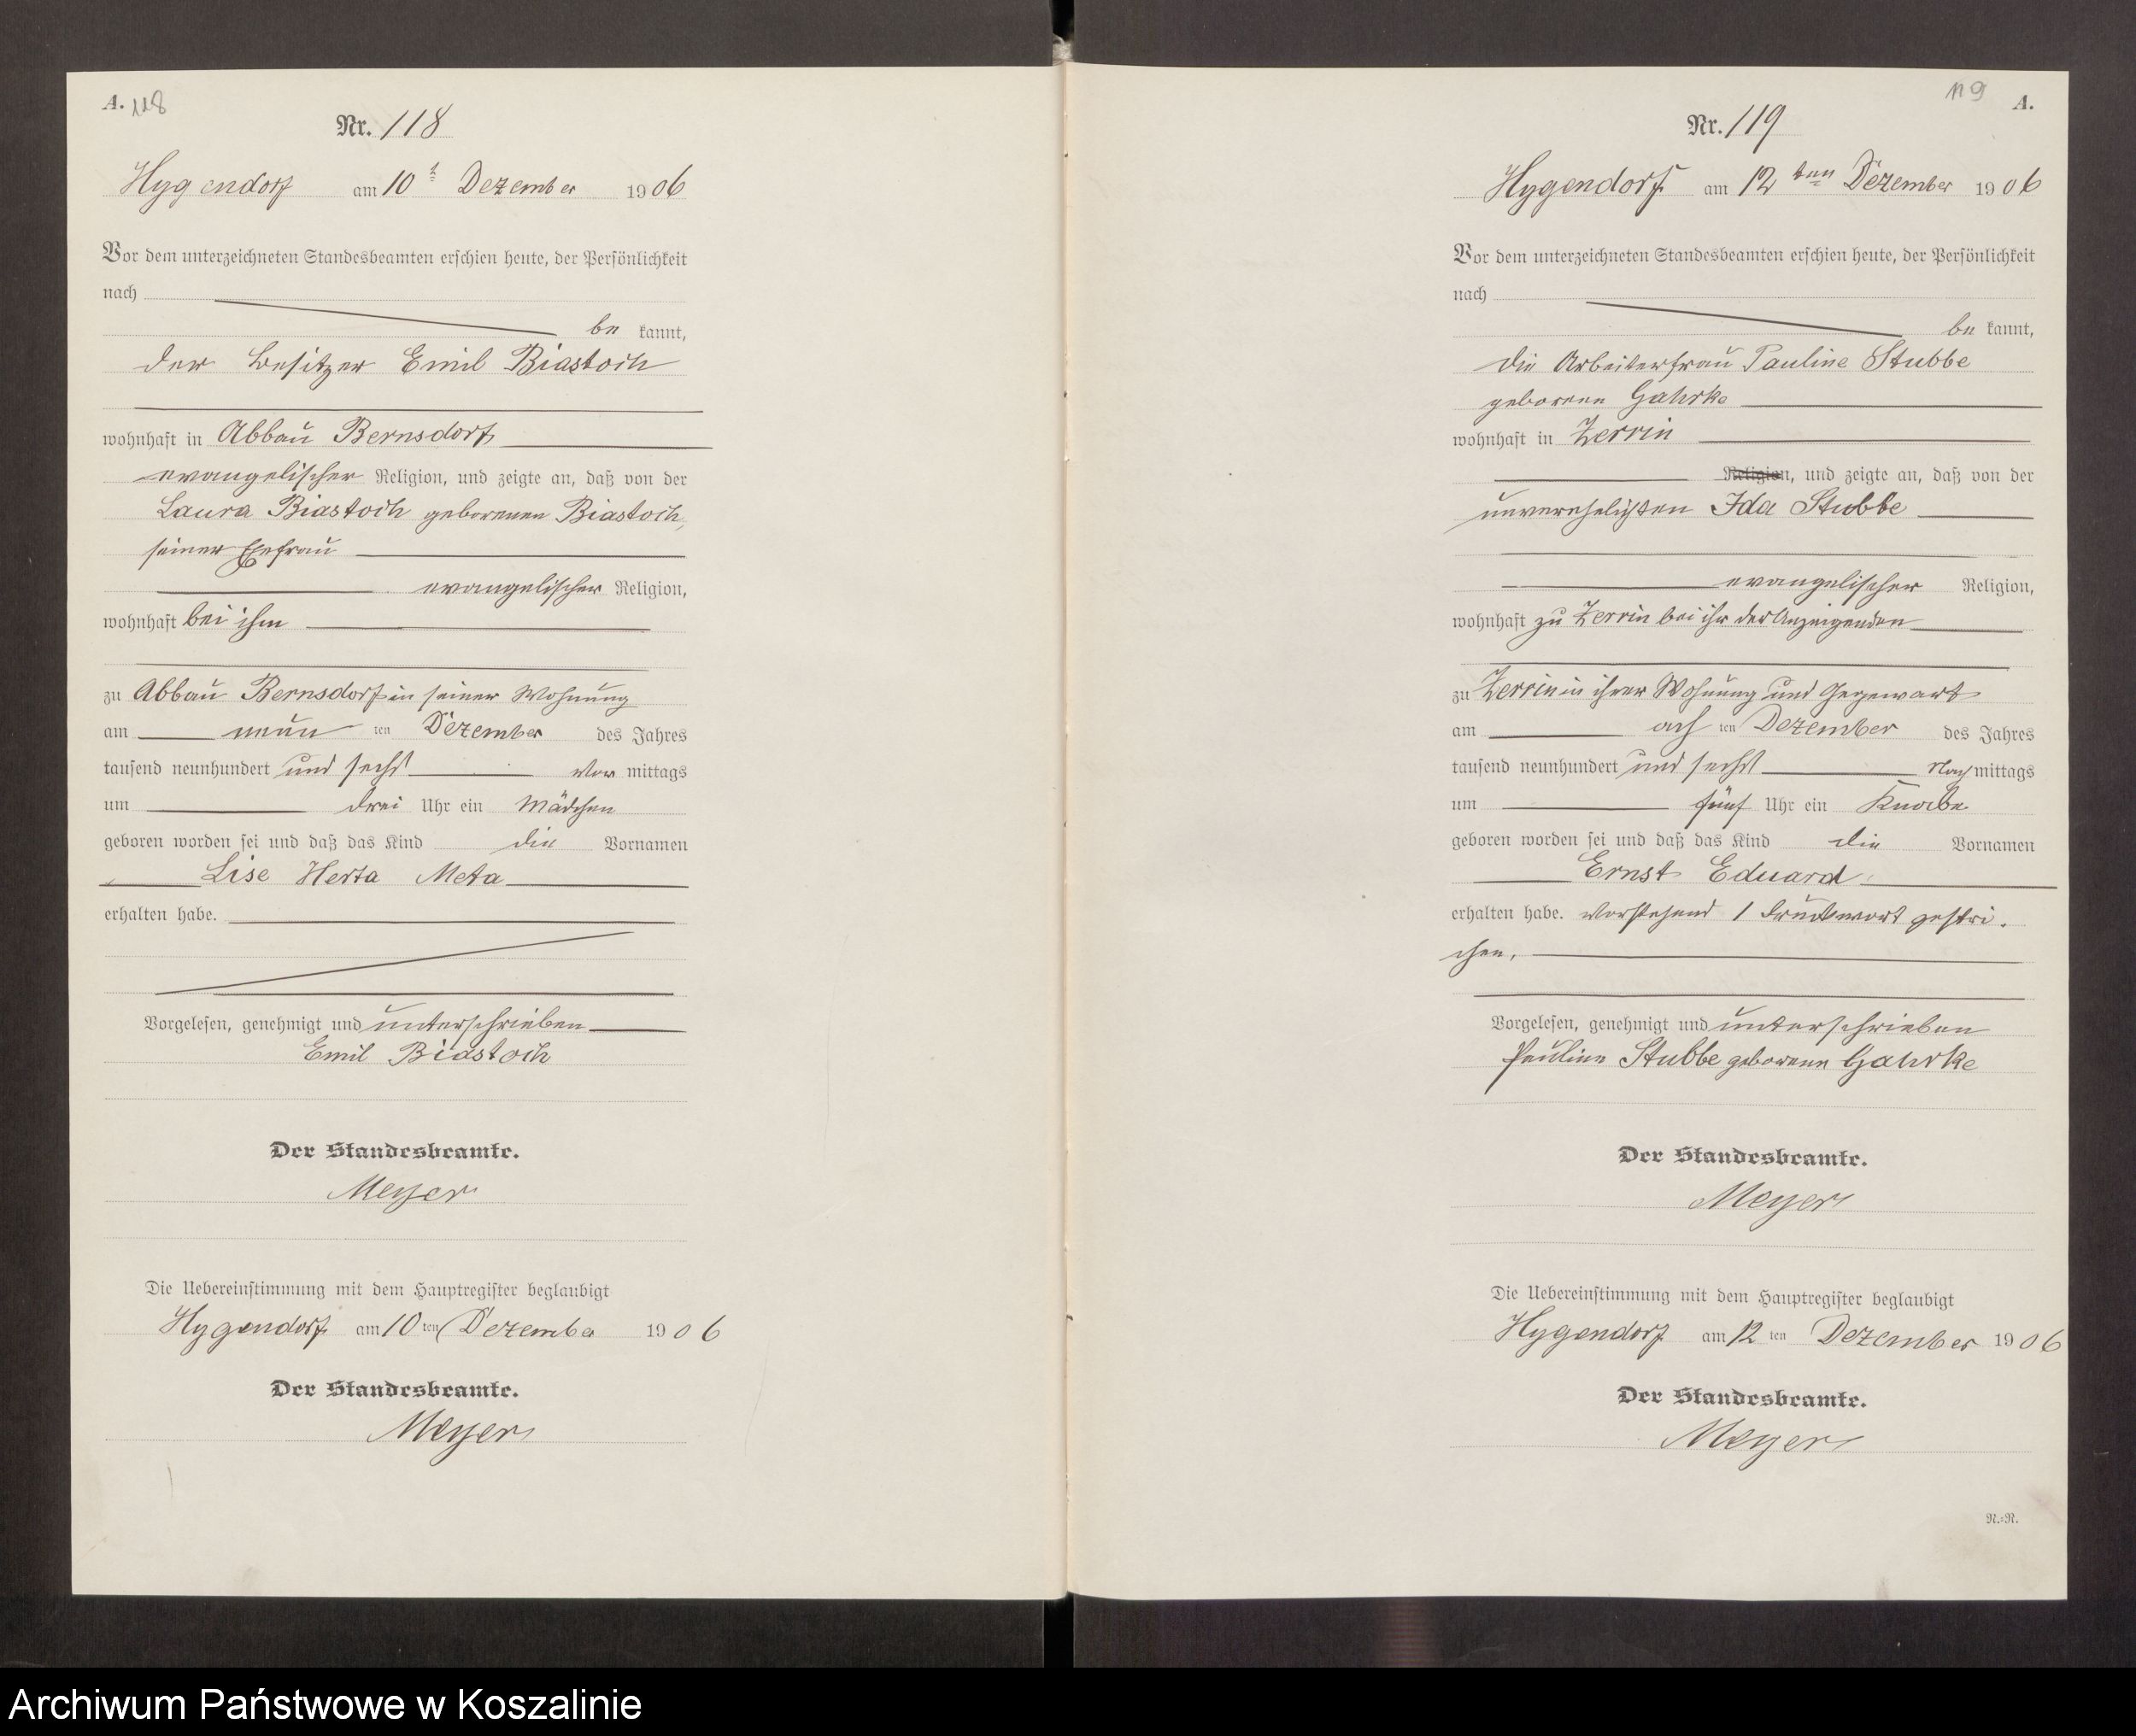 A. 118
Nr. 118
Hygendorf am 10t Dezember 1906
Vor dem unterzeichneten Standesbeamten erschien heute, der Persönlichkeit
nach
be kannt,
der Besitzer Emil Biastoch
wohnhaft in Abbau Bernsdorf
evangelischer Religion, und zeigte an, daß von der
Laura Biastoch geborenen Biastoch,
seiner Ehefrau
evangelischer Religion,
wohnhaft bei ihm
zu Abbau Bernsdorf in seiner Wohnung
am neun ten Dezember des Jahres
tausend neunhundert und sechs Vor mittags
um drei Uhr ein Mädchen
geboren worden sei und daß das Kind die Vornamen
Lise Herta Meta
erhalten habe.
Vorgelesen, genehmigt und unterschrieben
Emil Biastoch
Der Standesbeamte.
Meyer
Die Uebereinstimmung mit dem Hauptregister beglaubigt
Hygendorf am 10 ten Dezember 1906
Der Standesbeamte.
Meyer
119 A.
Nr. 119
Hygendorf am 12 ten Dezember 1906
Vor dem unterzeichneten Standesbeamten erschien heute, der Persönlichkeit
nach
be kannt,
die Arbeiterfrau Pauline Stubbe
geborene Gahrke
wohnhaft in Zerrin
Religion, und zeigte an, daß von der
unverehelichten Ida Stubbe
evangelischer Religion,
wohnhaft zu Zerrin bei ihr der Anzeigenden
zu Zerrin in ihrer Wohnung und Gegenwart
am ach ten Dezember des Jahres
tausend neunhundert und sechs Nach mittags
um fünf Uhr ein Knabe
geboren worden sei und daß das Kind die Vornamen
Ernst Eduard
erhalten habe. Vorstehend 1 Druckwort gestri.
chen.
Vorgelesen, genehmigt und unterschrieben
Pauline Stubbe geborene Gahrke
Der Standesbeamte.
Meyer
Die Uebereinstimmung mit dem Hauptregister beglaubigt
Hygendorf am 12 ten Dezember 1906
Der Standesbeamte.
Meyer
N.=N.
Archiwum Państwowe w Koszalinie